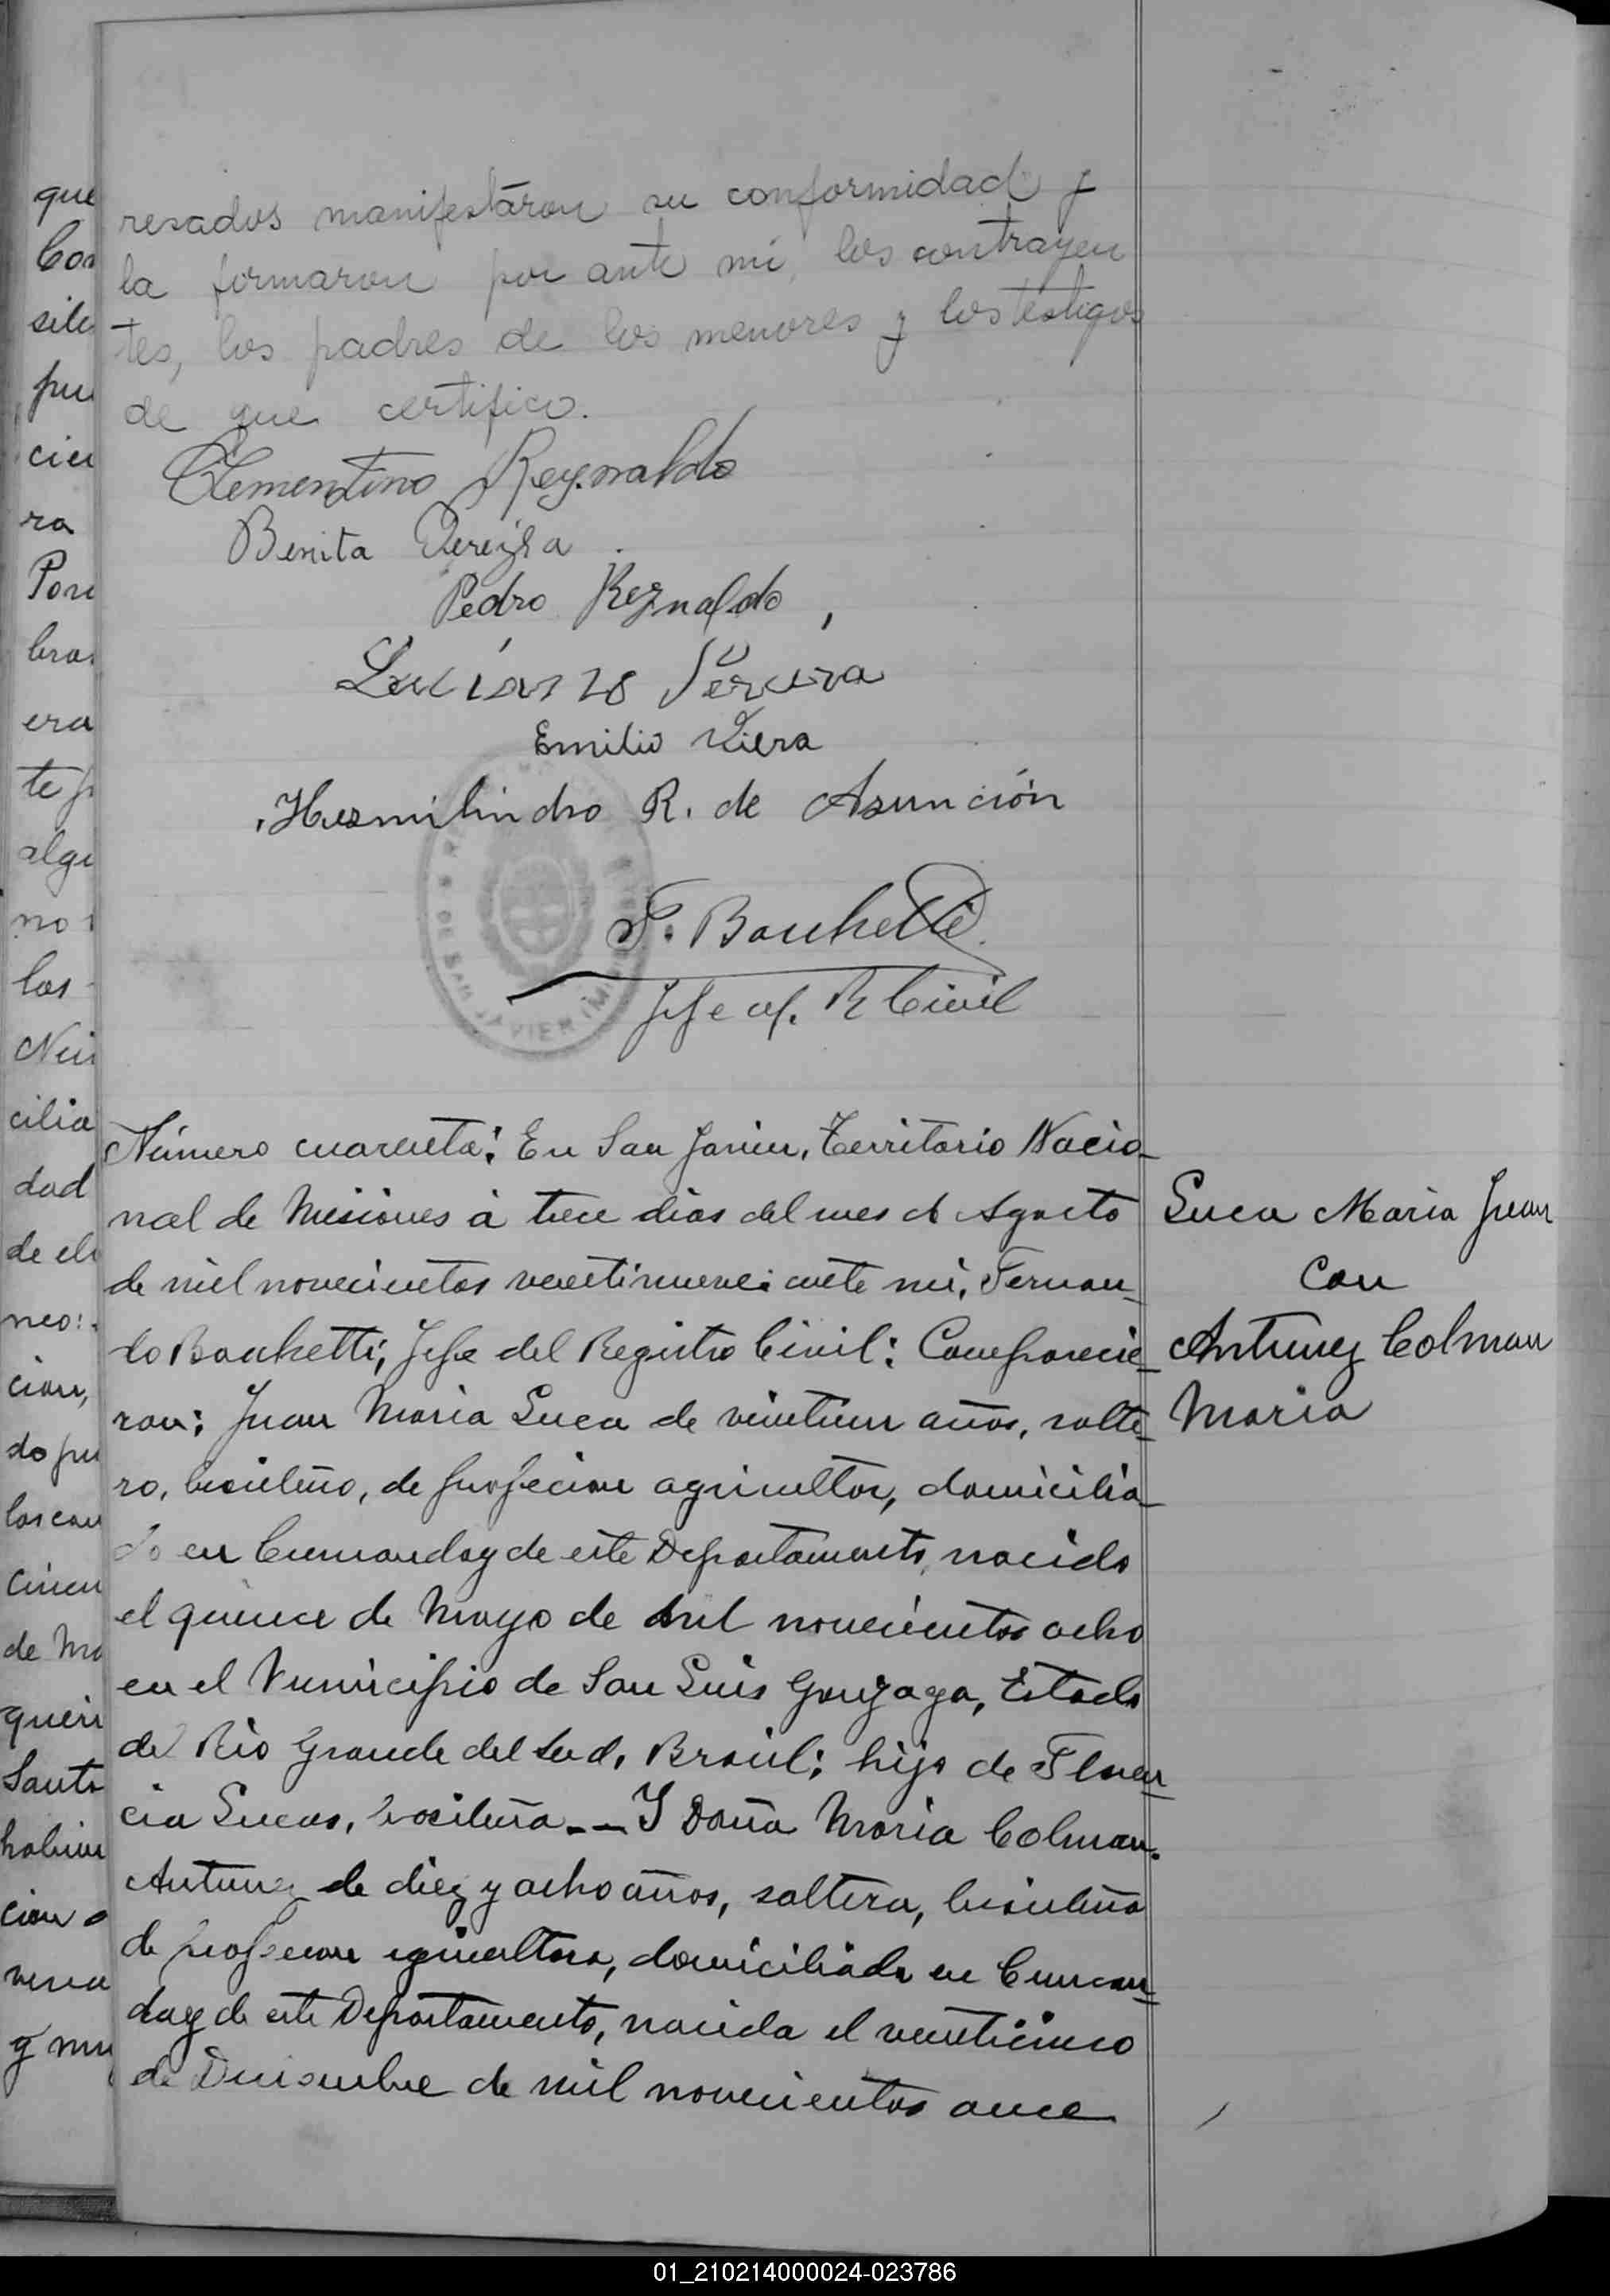 resados manifestáron su conformidad y
la firmaron por ante mi, los contrayen
tes, los padres de los menores y los testigos
de que certifico.
Clementino Reynaldo
Benita Pereyra
Pedro Reynaldo,
Luciano Pereira
Emilio Viera
Hermilindro R. de Asunción
F. Bouhetti
Jefe of. R Civil
Número cuarenta: En San Javier, Territorio Nacio-
nal de Misiones á trece dias del mes de Agosto
de mil novecientos veintinueve: ante mi, Fernan-
do Bouhetti, Jefe del Registro Civil: Comparecie-
ron: Juan Maria Luca de veintiun años, solte-
ro, brasileño, de profecion agricultor, domicilia-
do en Cumanday de este Departamento, nacido
el quince de Mayo de mil novecientos ocho
en el Municipio de San Luis Gonzaga, Estado
de Rio Grande del Sud, Brasil; hijo de Floren-
cia Lucas, brasileña.-- Y Doña Maria Colman.
Antunez de diez y ocho años, soltera, brasileña
de profecion agricultora, domiciliada en Cuman-
day de este Departamento, nacida el veinticinco
de Diciembre de mil novecientos once
Luca Maria Juan
Con
Antunez Colman
Maria
que
sile
pu
cier
ra
bra
era
te p
algu
no
los
cilia
dad
de el
neo:
cion,
do pu
los con
de Ma
queri
Santo
cion
y mu
01_210214000024-023786